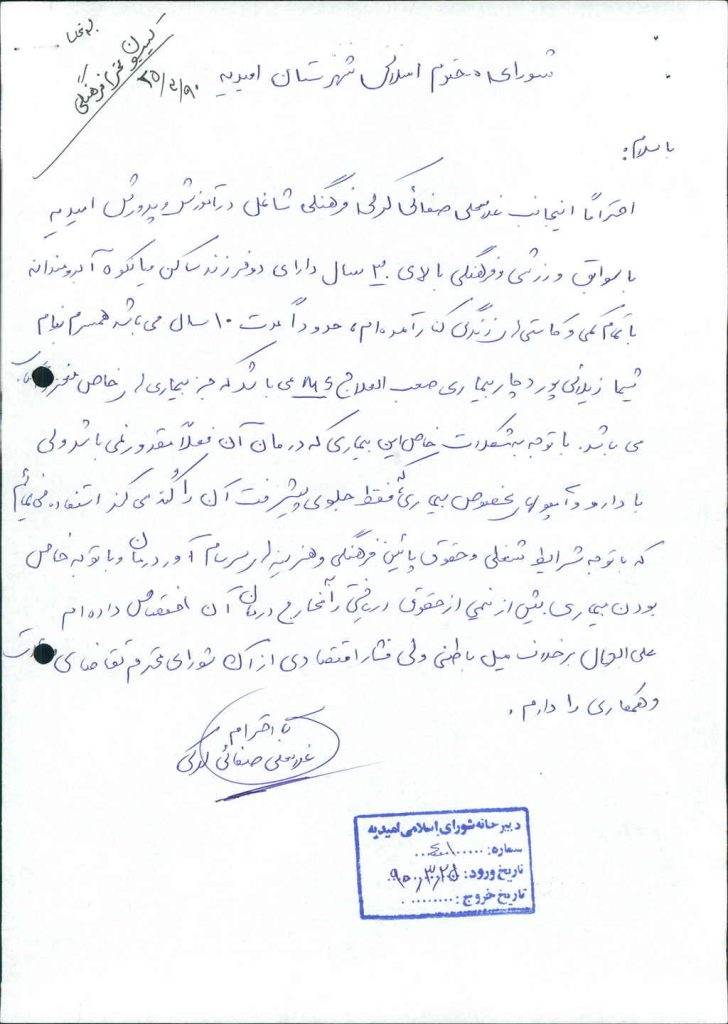 کمیسیون محترم فرهنگی
شورای محترم اسلامی شهرستان امیدیه
با سلام:
احتراماً اینجانب غلامعلی صفائی کرلی فرهنگی شاغل در آموزش و پرورش امیدیه
با سوابق ورزشی و فرهنگی بالای ۲۰ سال دارای دو فرزند ساکن میانکوه آبرومندانه
با تمام کمی و کاستی از زندگی کنار آمده ام، حدوداً مدت ۱۰ سال می باشد همسرم بنام
شیما زیلائی پور دچار بیماری صعب العلاج MS می باشد که جز بیماری ای خاص
می باشد. با توجه به مشکلات خاص این بیماری که درمان آن فعلاً مقدور نمی باشد ولی
با دارو و آمپول مخصوص بیماری که فقط جلوی پیشرفت آن را کُند می کند استفاده می نمائیم
که با توجه شرایط شغلی و حقوق پائین فرهنگی و هزینه ای سرسام آور درمان و با توجه خاص
بودن بیماری بیش از نیمی از حقوق دریافتی را مخارج درمان آن اختصاص داده ام
علی ایحال برخلاف میل باطنی ولی فشار اقتصادی از آن شورای محترم تقاضای
و همکاری را دارم.
با احترام
غلامعلی صفائی کرلی
دبیرخانه شورای اسلامی امیدیه
شماره:
تاریخ ورود: ۹۰/۳/۲۵
تاریخ خروج: